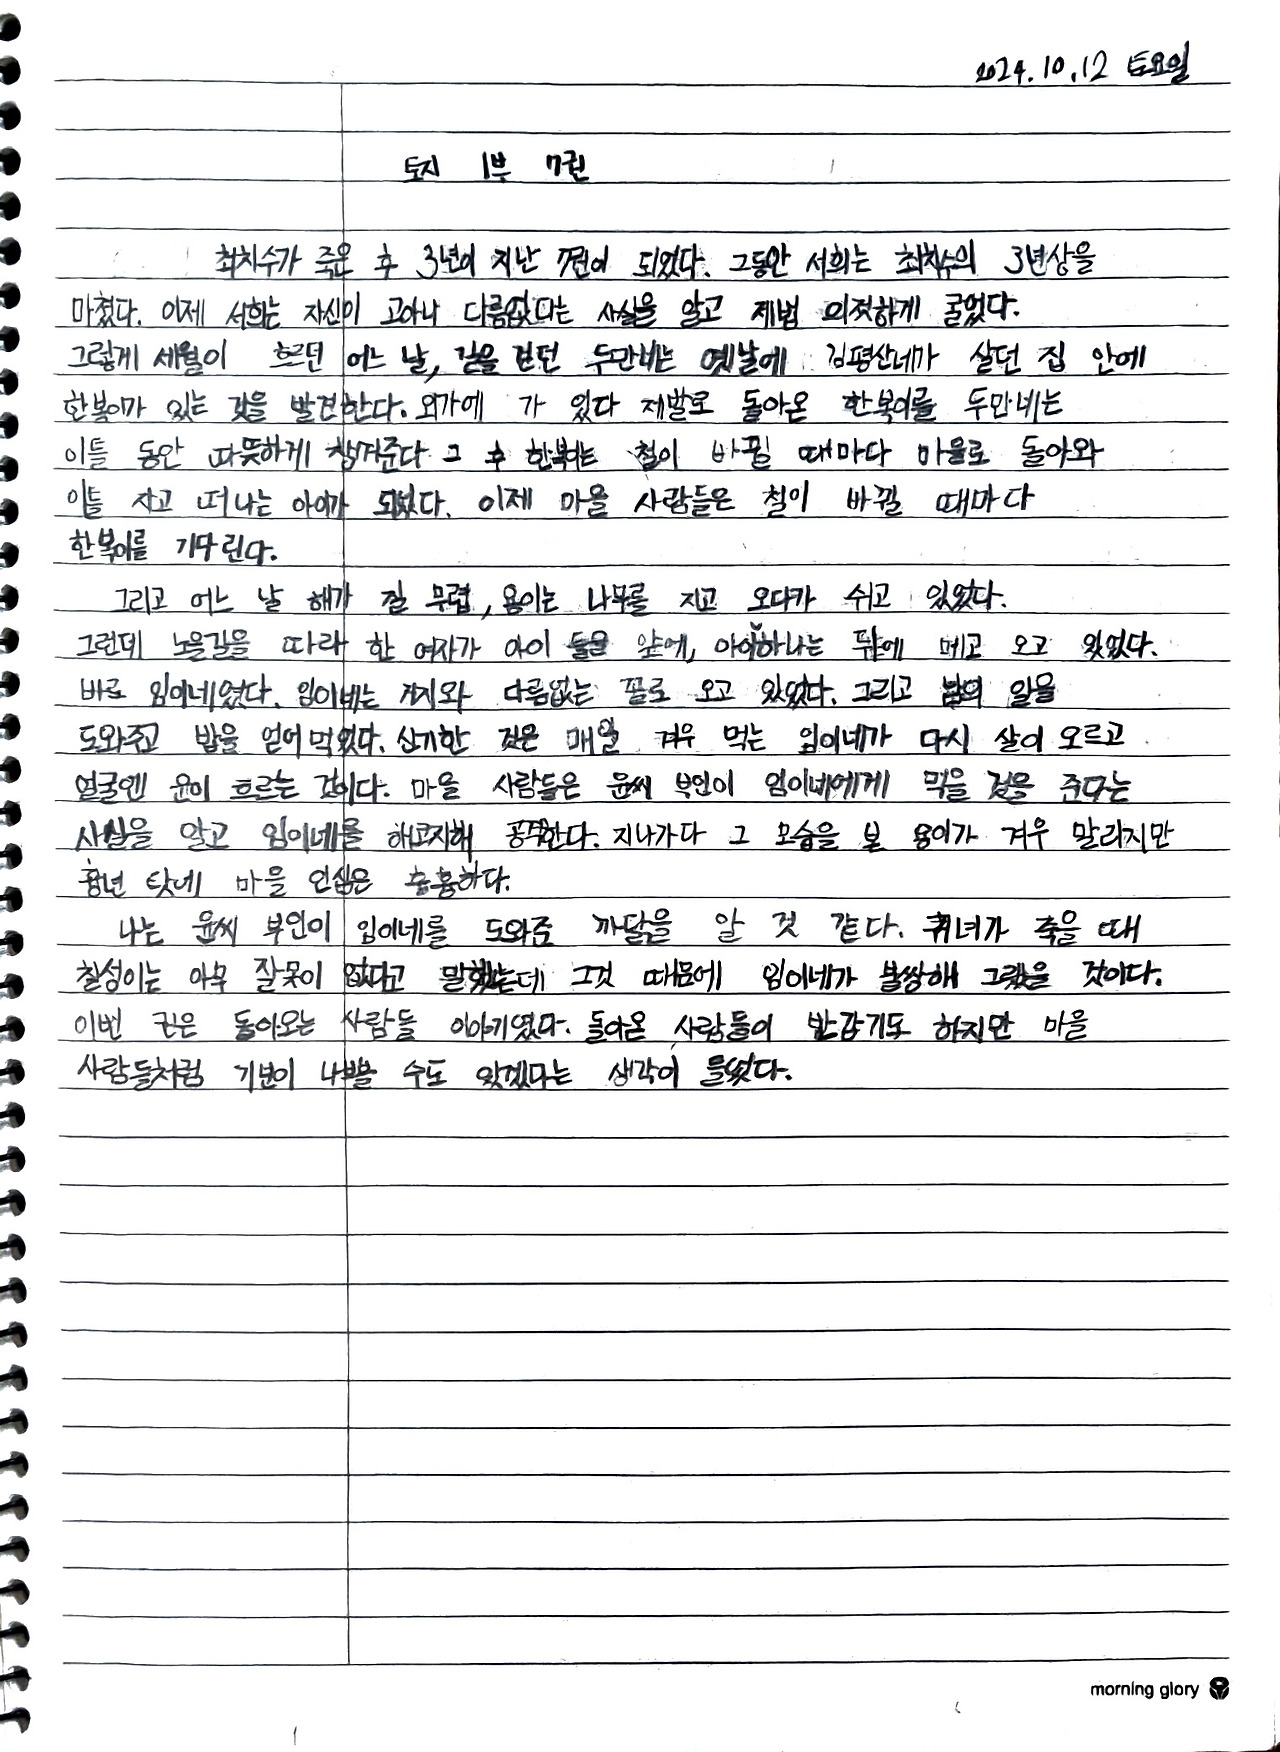 2024.10.12 토요일
토지 1부 7권
최치수가 죽은 후 3년이 지난 7권이 되었다. 그동안 서희는 최치수의 3년상을
마쳤다. 이제 서희는 자신이 고아나 다름없다는 사실을 알고 제법 의젓하게 굴었다.
그렇게 세월이 흐르던 어느 날, 길을 걷던 두만네는 옛날에 김평산네가 살던 집 안에
한복이가 있는 것을 발견한다. 외가에 가 있다 제발로 돌아온 한복이를 두만네는
이틀 동안 따뜻하게 챙겨준다 그 후 한복이는 철이 바뀔 때마다 마을로 돌아와
이틀 자고 떠나는 아이가 되었다. 이제 마을 사람들은 철이 바뀔 때마다
한복이를 기다린다.
그리고 어느 날 해가 질 무렵, 용이는 나무를 지고 오다가 쉬고 있었다.
그런데 노을길을 따라 한 여자가 아이 둘을 앞에, 아이하나는 뒤에 메고 오고 있었다.
바로 임이네였다. 임이네는 거지와 다름없는 꼴로 오고 있었다. 그리고 남의 일을
도와주고 밥을 얻어먹었다. 신기한 것은 매일 겨우 먹는 임이네가 다시 살이 오르고
얼굴엔 윤이 흐르는 것이다. 마을 사람들은 윤씨 부인이 임이네에게 먹을 것을 준다는
사실을 알고 임이네를 해코지해 공격한다. 지나가다 그 모습을 본 용이가 겨우 말리지만
흉년 탓에 마을 인심은 흉흉하다.
나는 윤씨 부인이 임이네를 도와준 까닭을 알 것 같다. 귀녀가 죽을 때
칠성이는 아무 잘못이 없다고 말했는데 그것 때문에 임이네가 불쌍해 그랬을 것이다.
이번 권은 돌아오는 사람들 이야기였다. 돌아온 사람들이 반갑기도 하지만 마을
사람들처럼 기분이 나쁠 수도 있겠다는 생각이 들었다.
morning glory